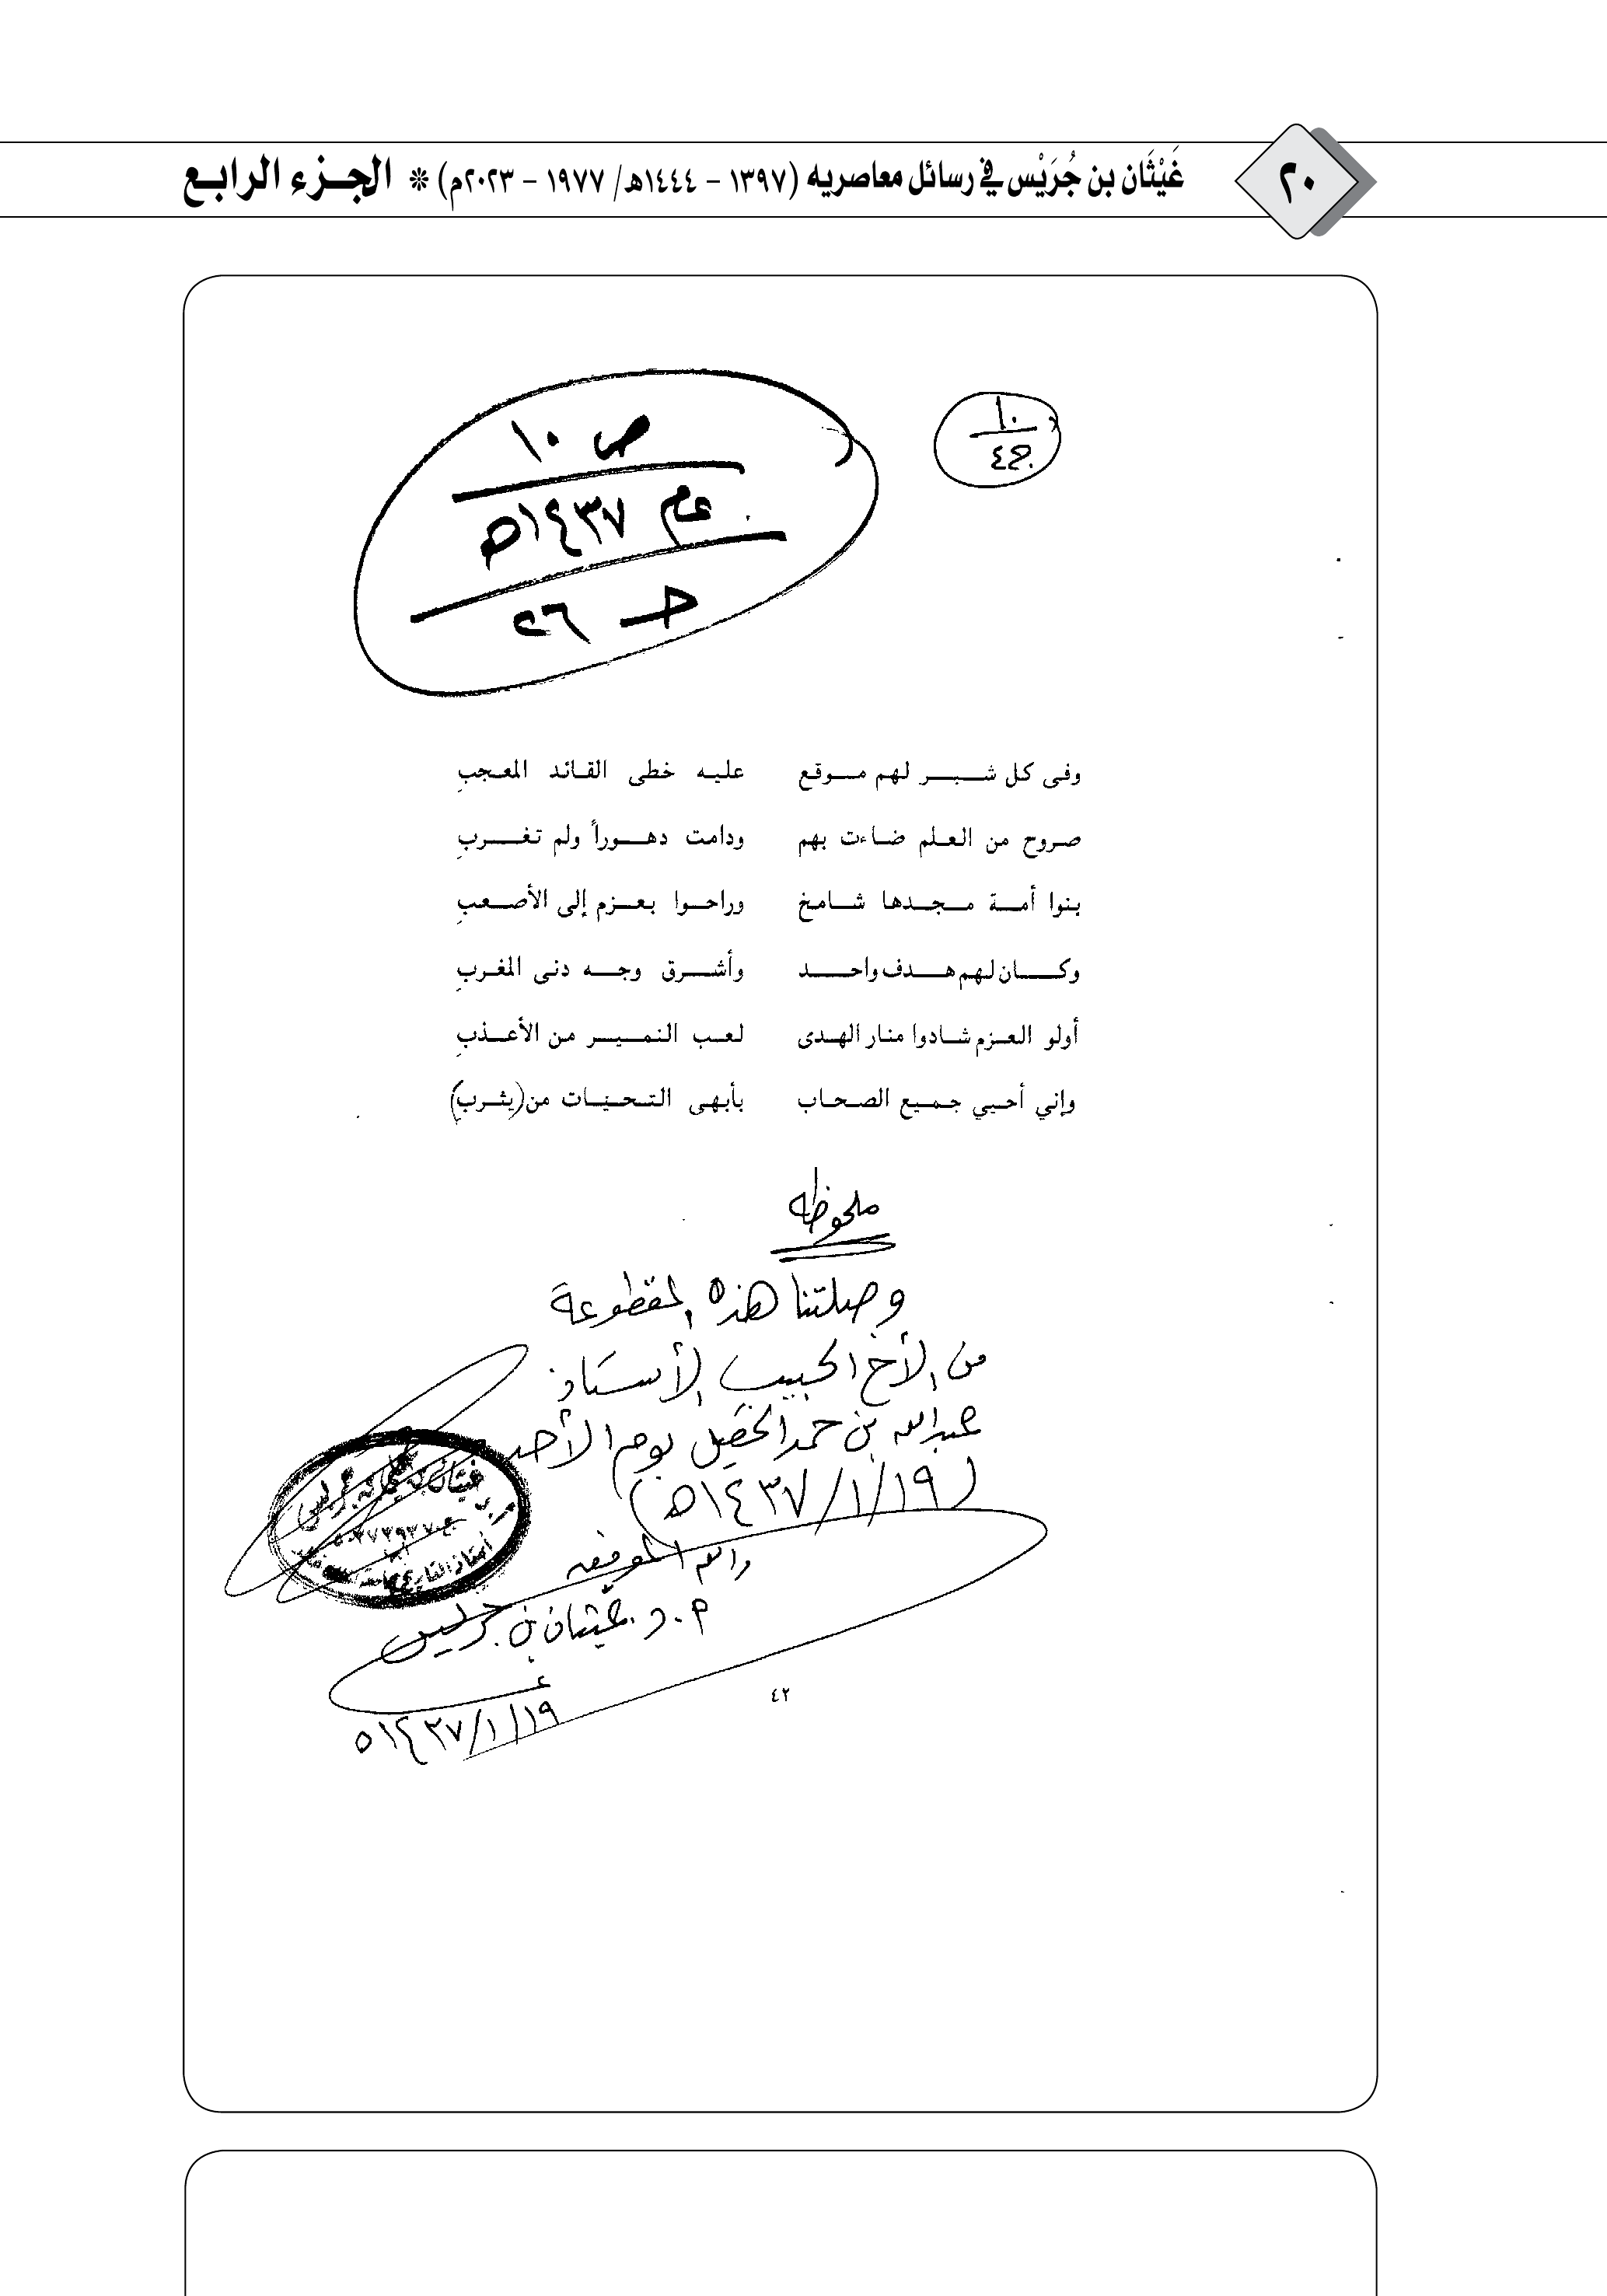 ٢٠
غَيْثَان بن جُرَيْس في رسائل معاصريه (١٣٩٧ - ١٤٤٤هـ/ ١٩٧٧ - ٢٠٢٣م) * الجزء الرابع
١٠
ج٤
ص ١٠
عام ١٤٣٧هـ
حـ ٢٦
وفى كل شبر لهم موقع عليه خطى القائد المعجبِ
صروح من العلم ضاءت بهم ودامت دهوراً ولم تغربِ
بنوا أمة مجدها شامخ وراحوا بعزم إلى الأصعبِ
وكان لهم هدف واحد وأشرق وجه دنى المغربِ
أولو العزم شادوا منار الهدى لعب النمير من الأعذبِ
وإني أحيي جميع الصحاب بأبهى التحيات من (يثربِ)
ملحوظه
وصلتنا هذه المقطوعة
من الأخ الحبيب الأستاذ
عبدالله بن حمد الحقيل يوم الأحد
(١٩/١/١٤٣٧هـ)
والله الموفق
أ.د. غيثان بن جريس
١٩/١/١٤٣٧ه
٤٢